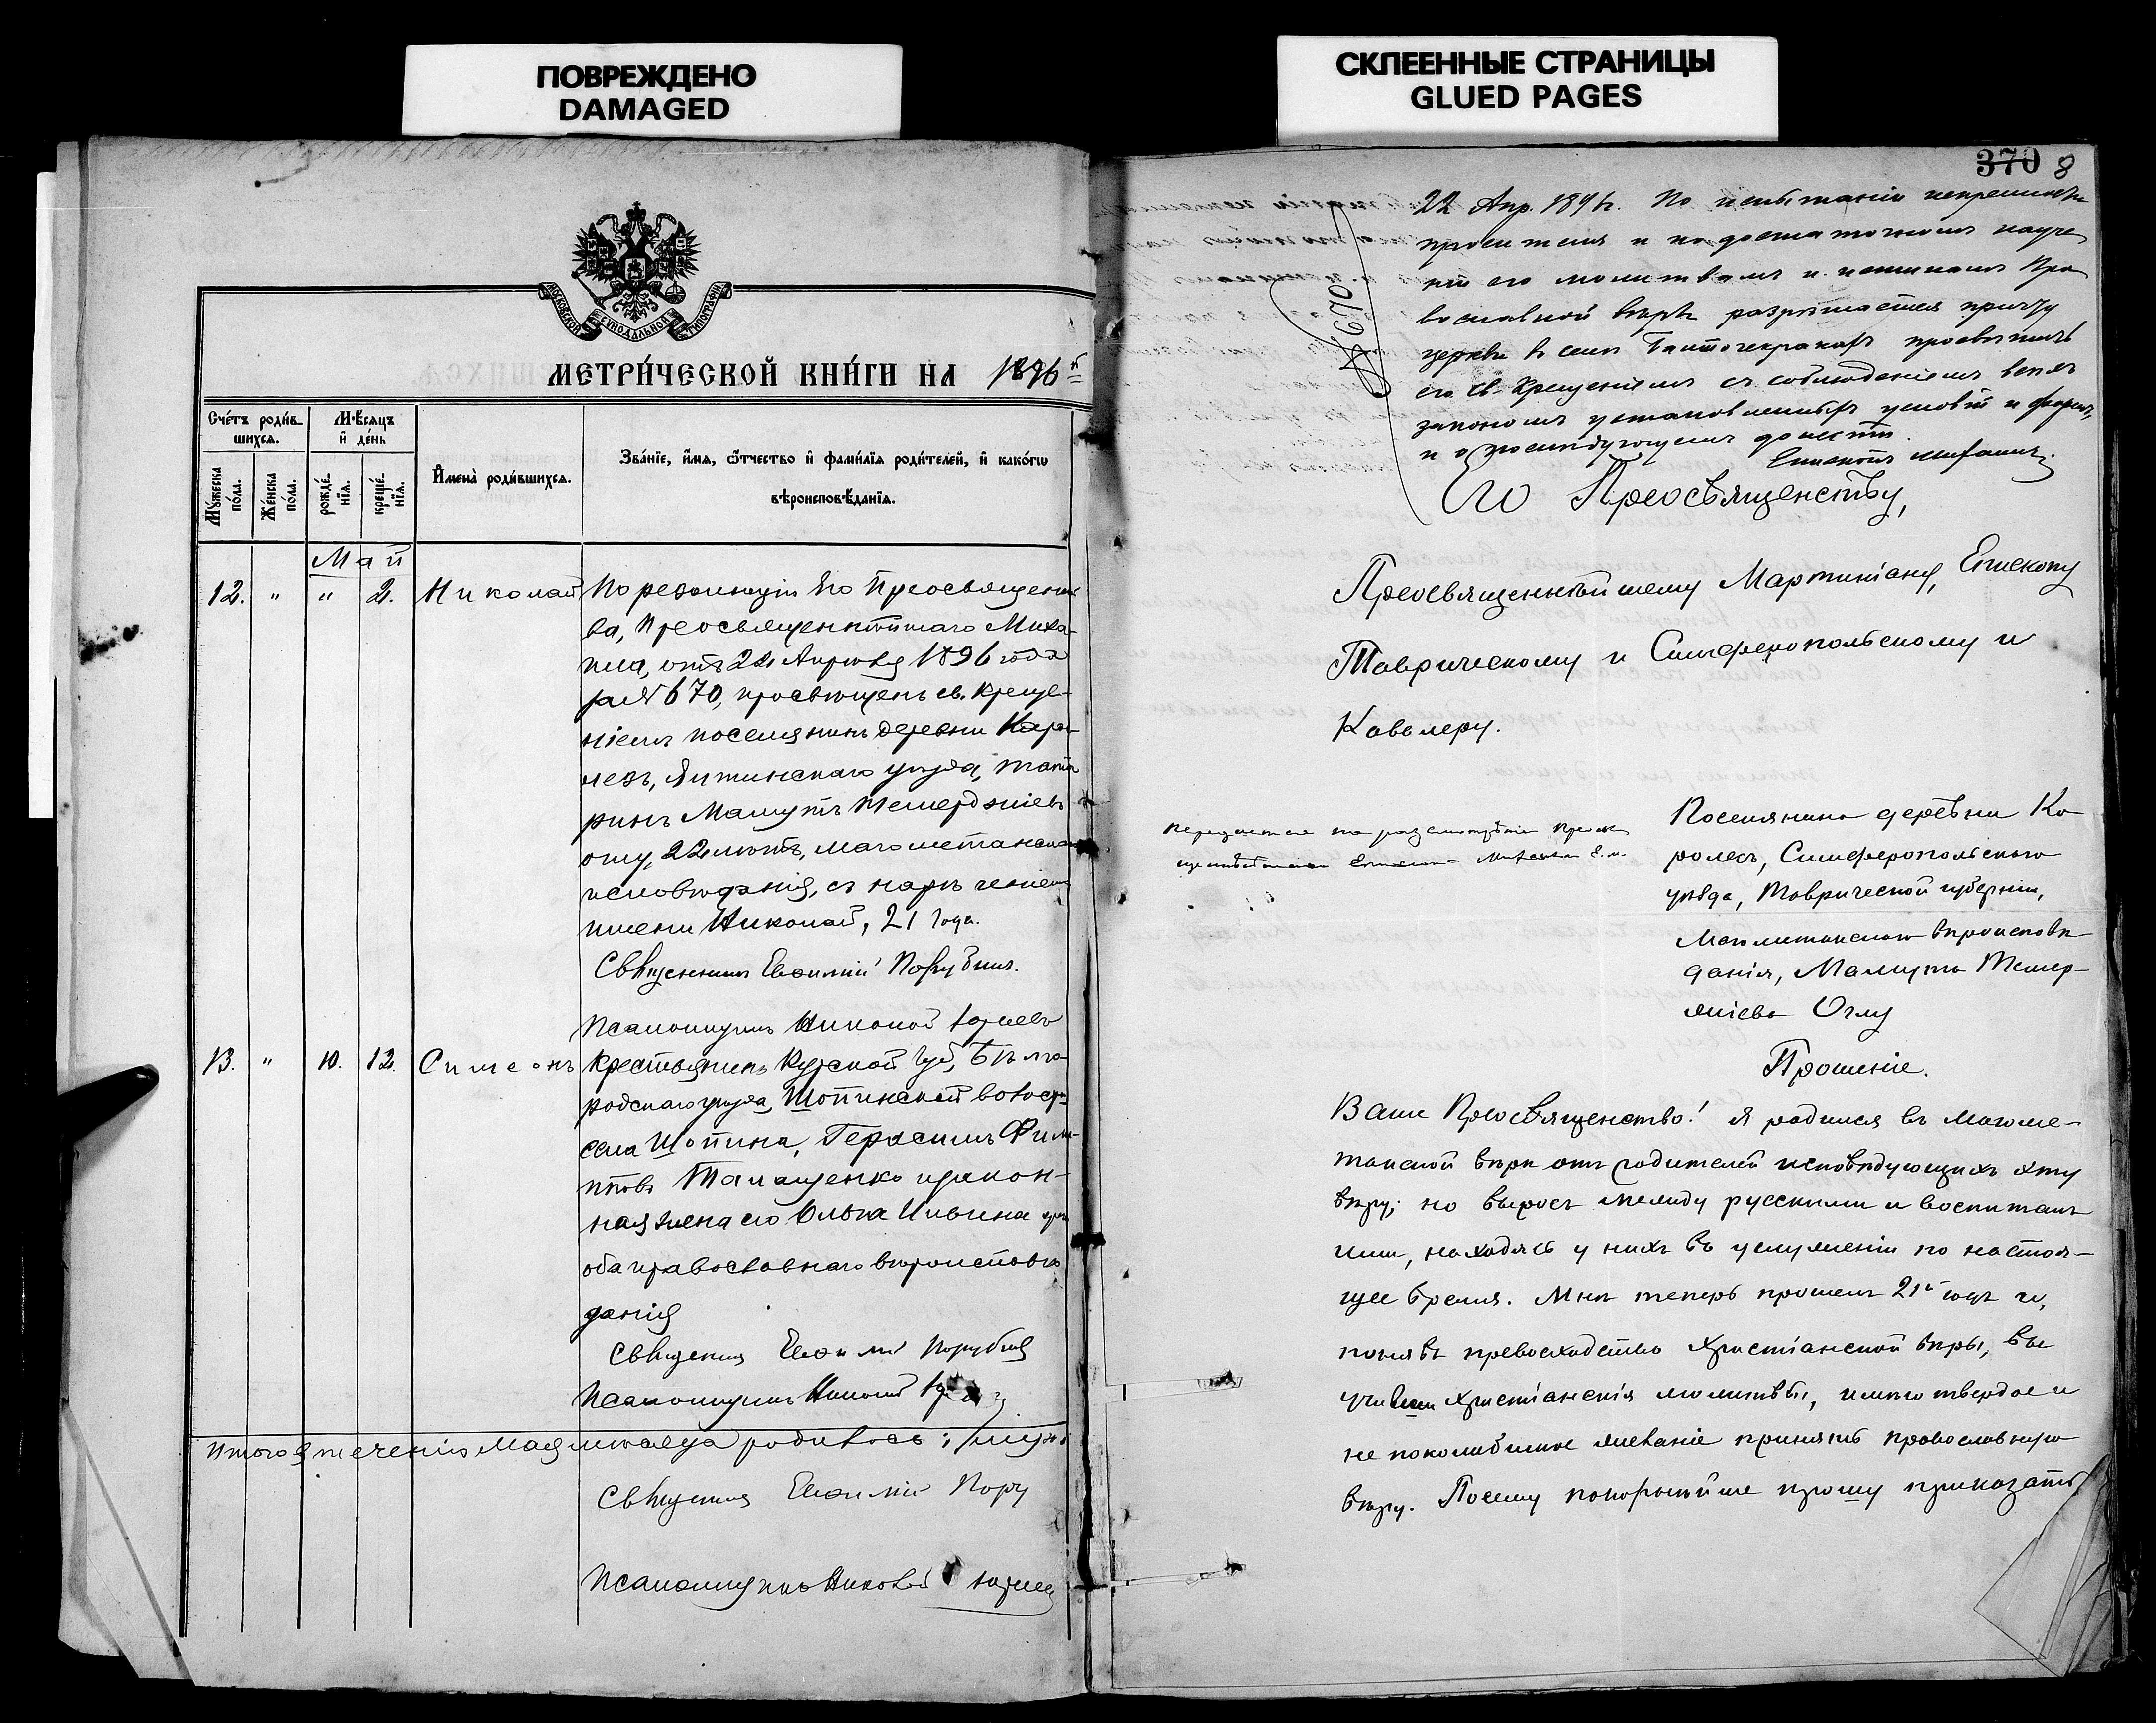 ПОВРЕЖДЕНО
DAMAGED
СКЛЕЕННЫЕ СТРАНИЦЫ
GLUED PAGES
МОСКОВСКОЙ СѴНОДАЛЬНОЙ ТИПОГРАФІИ
МЕТРИ́ЧЕСКОЙ КНИ́ГИ НА 1896 й
Сче́тъ роди́в-
шихся.
Мꙋ́жеска
по́ла.
Же́нска
по́ла.
Мѣ́сяцъ
и҆ де́нь
рожде́-
нїѧ.
креще́-
нїѧ.
И҆мена̀ роди́вшихся.
Зва́нїе, и҆́мѧ, ѻ҆́тчество и҆ фами́лїѧ роди́телей, и҆ како́гѡ
вѣроисповѣ́данїѧ.
Май
12. " " 2. Николай По резолюціи Его Преосвященст
ва, Преосвященнѣйшаго Миха-
ила, отъ 22 Апрѣля 1896 года
за № 670, просвѣщенъ св. Креще-
ніемъ поселянинъ деревни Кара-
лезъ, Ялтинскаго уѣзда, тата
ринъ Мамутъ Темерджіевъ
оглу, 22 лѣтъ, магометанскаго
исповѣданія, съ нареченіемъ
имени Николай, 21 года.
Священникъ Евѳимій Порубинъ.
Псаломщикъ Николай
13. " 10. 12. Симеонъ Крестьянинъ Курской губ, Бѣлго
родскаго уѣзда, Шопинской волости
села Шопина, Герасимъ Фили-
пповъ Танащенко и закон-
ная жена его Ольга Ильина
оба православнаго вѣроисповѣ
данія
Священникъ Евѳимій Порубинъ
Псаломщикъ Николай
Итого въ теченіи Мая мѣсяца родилось:
Священникъ Евѳимій Пору
Псаломщикъ Николай
370 8
№ 670
22 Апр. 1896 г. По испытаніи искренности
просителя и по достаточномъ науче
ніи его молитвамъ и истинамъ Пра
вославной вѣры разрѣшается причту
церкви в селѣ просвѣтить
его Св. Крещеніемъ съ соблюденіемъ всѣхъ
закономъ установленныхъ условій и формъ,
и о послѣдующемъ донести.
Епископъ Михаилъ.
Его Преосвященству,
Преосвященнѣйшему Мартиніану, Епископу
Таврическому и Симферопольскому и
Кавалеру.
Передается на разсмотрѣніе Преосв
Епископа Михаила Е. М.
Поселянина деревни Ка
ралезъ, Симферопольскаго
уѣзда, Таврической губерніи,
Магометанскаго вѣроисповѣ-
данія, Мамута Темер-
джіева Оглу
Прошеніе.
Ваше Преосвященство! Я родился въ магоме-
танской вѣрѣ отъ родителей исповѣдующихъ эту
вѣру; но выросъ между русскими и воспитанъ
ими, находясь у нихъ въ услуженіи по настоя-
щее время. Мнѣ теперь прошелъ 21й годъ и,
понявъ превосходство Христіанской вѣры, вы
учивши Христіанскія молитвы, имѣю твердое и
не поколебимое желаніе принять православную
вѣру. Посему покорнѣйше прошу приказать